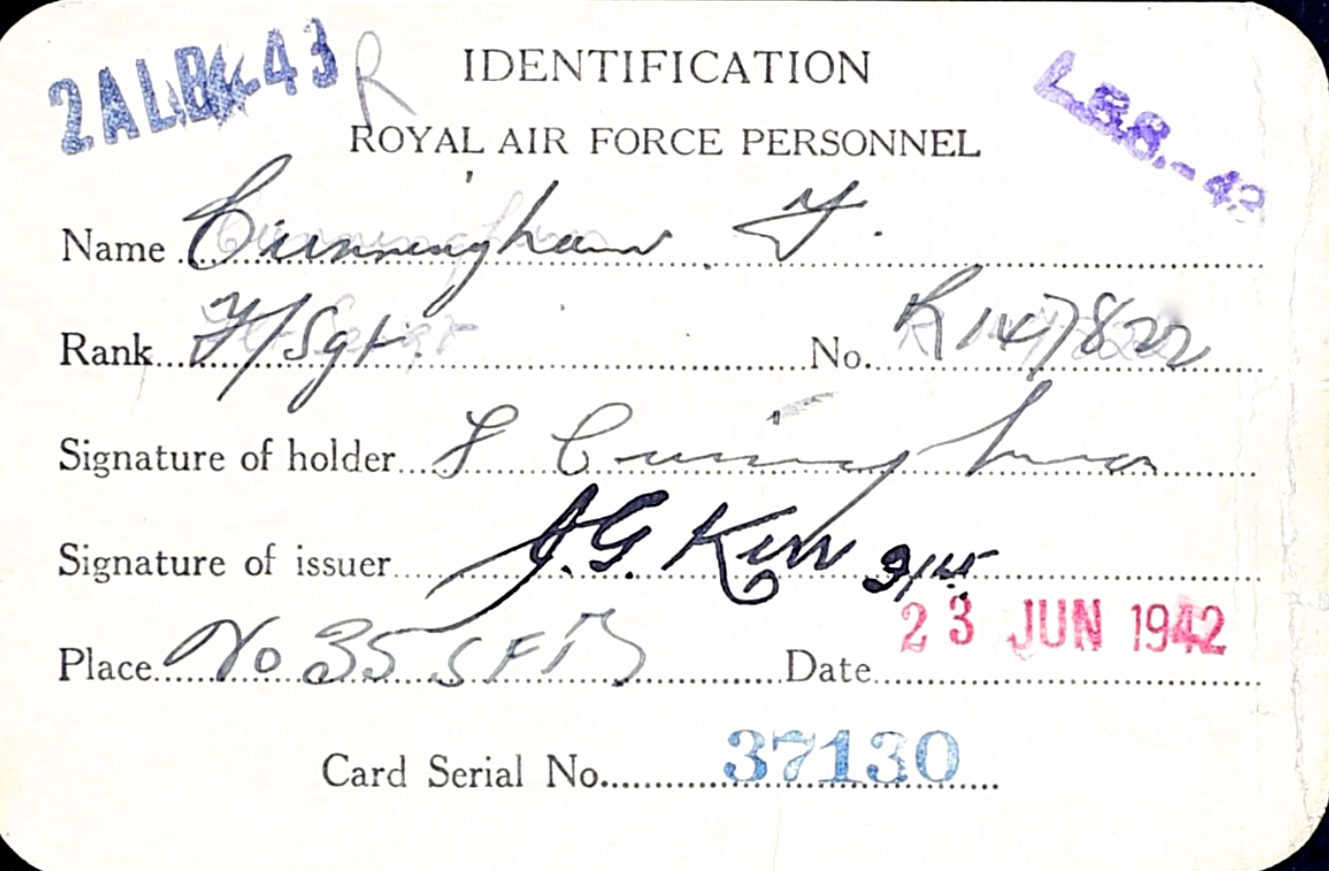 2ALB 43 R
IDENTIFICATION
ROYAL AIR FORCE PERSONNEL
Name Cunningham. F.
Rank F/Sgt. No. R147822
Signature of holder F Cunningham
Signature of issuer J.G. Kerr
Place No 35 SFTS Date 23 JUN 1942
Card Serial No. 37130